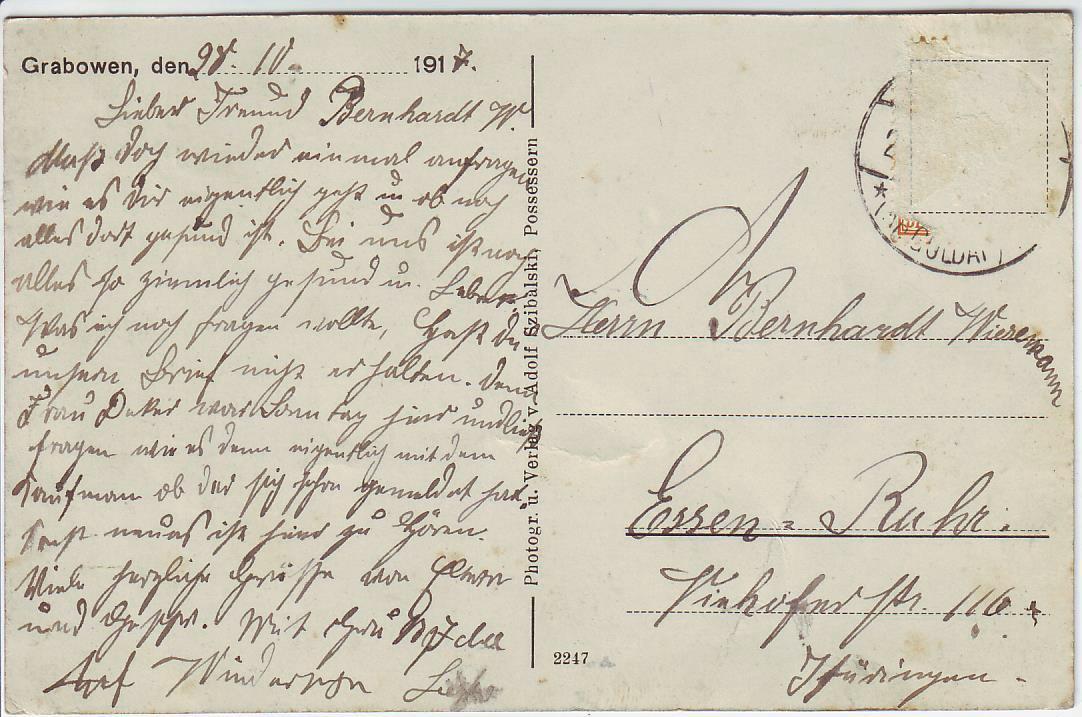 Grabowen, den 28. 10. 1917.
Lieber Freund Bernhardt W.
Muß doch wieder einmal anfragen
wie es Dir eigentlich geht u ob noch
alles dort gesund ist. Bei uns ist noch
alles so ziemlich gesund u. Leben
Was ich noch fragen wollte, Hast Du
unsern Brief nicht erhalten. Denn
Frau Deker war Sonntag hier und ließ
fragen wie es denn eigentlich mit dem
Kaufman ob der sich schon gemeldet hat
Sonst neues ist hier zu Hören.
Viele herzliche Grüsse von Eltern
und Geschw. Mit
Auf Wiedersehn
Photogr. u. Verlag v. Adolf Szibalski, Possessern
2247
Herrn Bernhardt Wiesemann
Essen = Ruhr.
Viehofer str. 116
Thüringen -